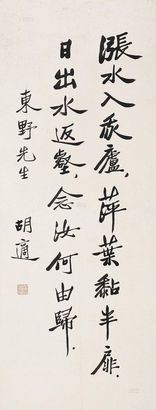 漲水入茂廬，萍葉黏半扉．
日出水返壑，念汝何由歸．
東野先生
胡適